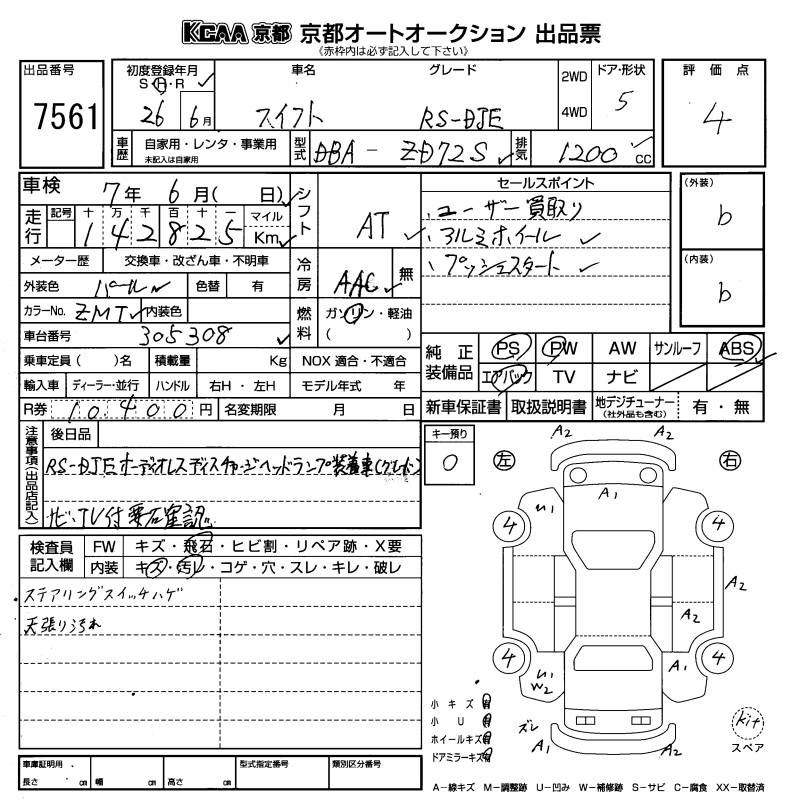 KCAA 京都 京都オートオークション 出品票
《赤枠内は必ず記入して下さい》
出品番号
7561
初度登録年月
S・H・R
26 6月
車名
スイフト
グレード
RS-DJE
2WD
4WD
ドア・形状
5
評価点
4
車歴
自家用・レンタ・事業用
未記入は自家用
型式
DBA - ZD72S
排気
1200 cc
車検
7年 6月( 日)
走行
記号 十 万 千 百 十 一
1 4 2 8 2 5
マイル
Km
シフト
AT
メーター歴 交換車・改ざん車・不明車
冷房
AAC
無
外装色 パール 色替 有
カラーNo. ZMT 内装色
燃料
ガソリン・軽油
( )
車台番号 305308
乗車定員( )名 積載量 Kg NOX 適合・不適合
輸入車 ディーラー・並行 ハンドル 右H・左H モデル年式 年
R券 10,400円 名変期限 月 日
セールスポイント
、ユーザー買取り
、アルミホイール
、プッシュスタート
(外装)
b
(内装)
b
純正装備品
PS PW AW サンルーフ ABS
エアバック TV ナビ
新車保証書 取扱説明書 地デジチューナー(社外品も含む) 有・無
注意事項(出品店記入)
後日品
RS-DJEオーディオレスディスチャージヘッドランプ装着車
ナビ、TV付要石確認
キー預り
0
左
右
A2 A2
A1
U1
4 4
A2
A2
4 4
A1
U1
W2
ズレ
A1 A2
検査員記入欄
FW キズ・飛石・ヒビ割・リペア跡・X要
内装 キズ・汚レ・コゲ・穴・スレ・キレ・破レ
・ステアリングスイッチハゲ
天張り汚れ
小キズ 有
小U 有
ホイールキズ 有
ドアミラーキズ 有
kit
スペア
車庫証明用
長さ cm 幅 cm 高さ cm
型式指定番号
類別区分番号
A－線キズ M－調整跡 U－凹み W－補修跡 S－サビ C－腐食 XX－取替済